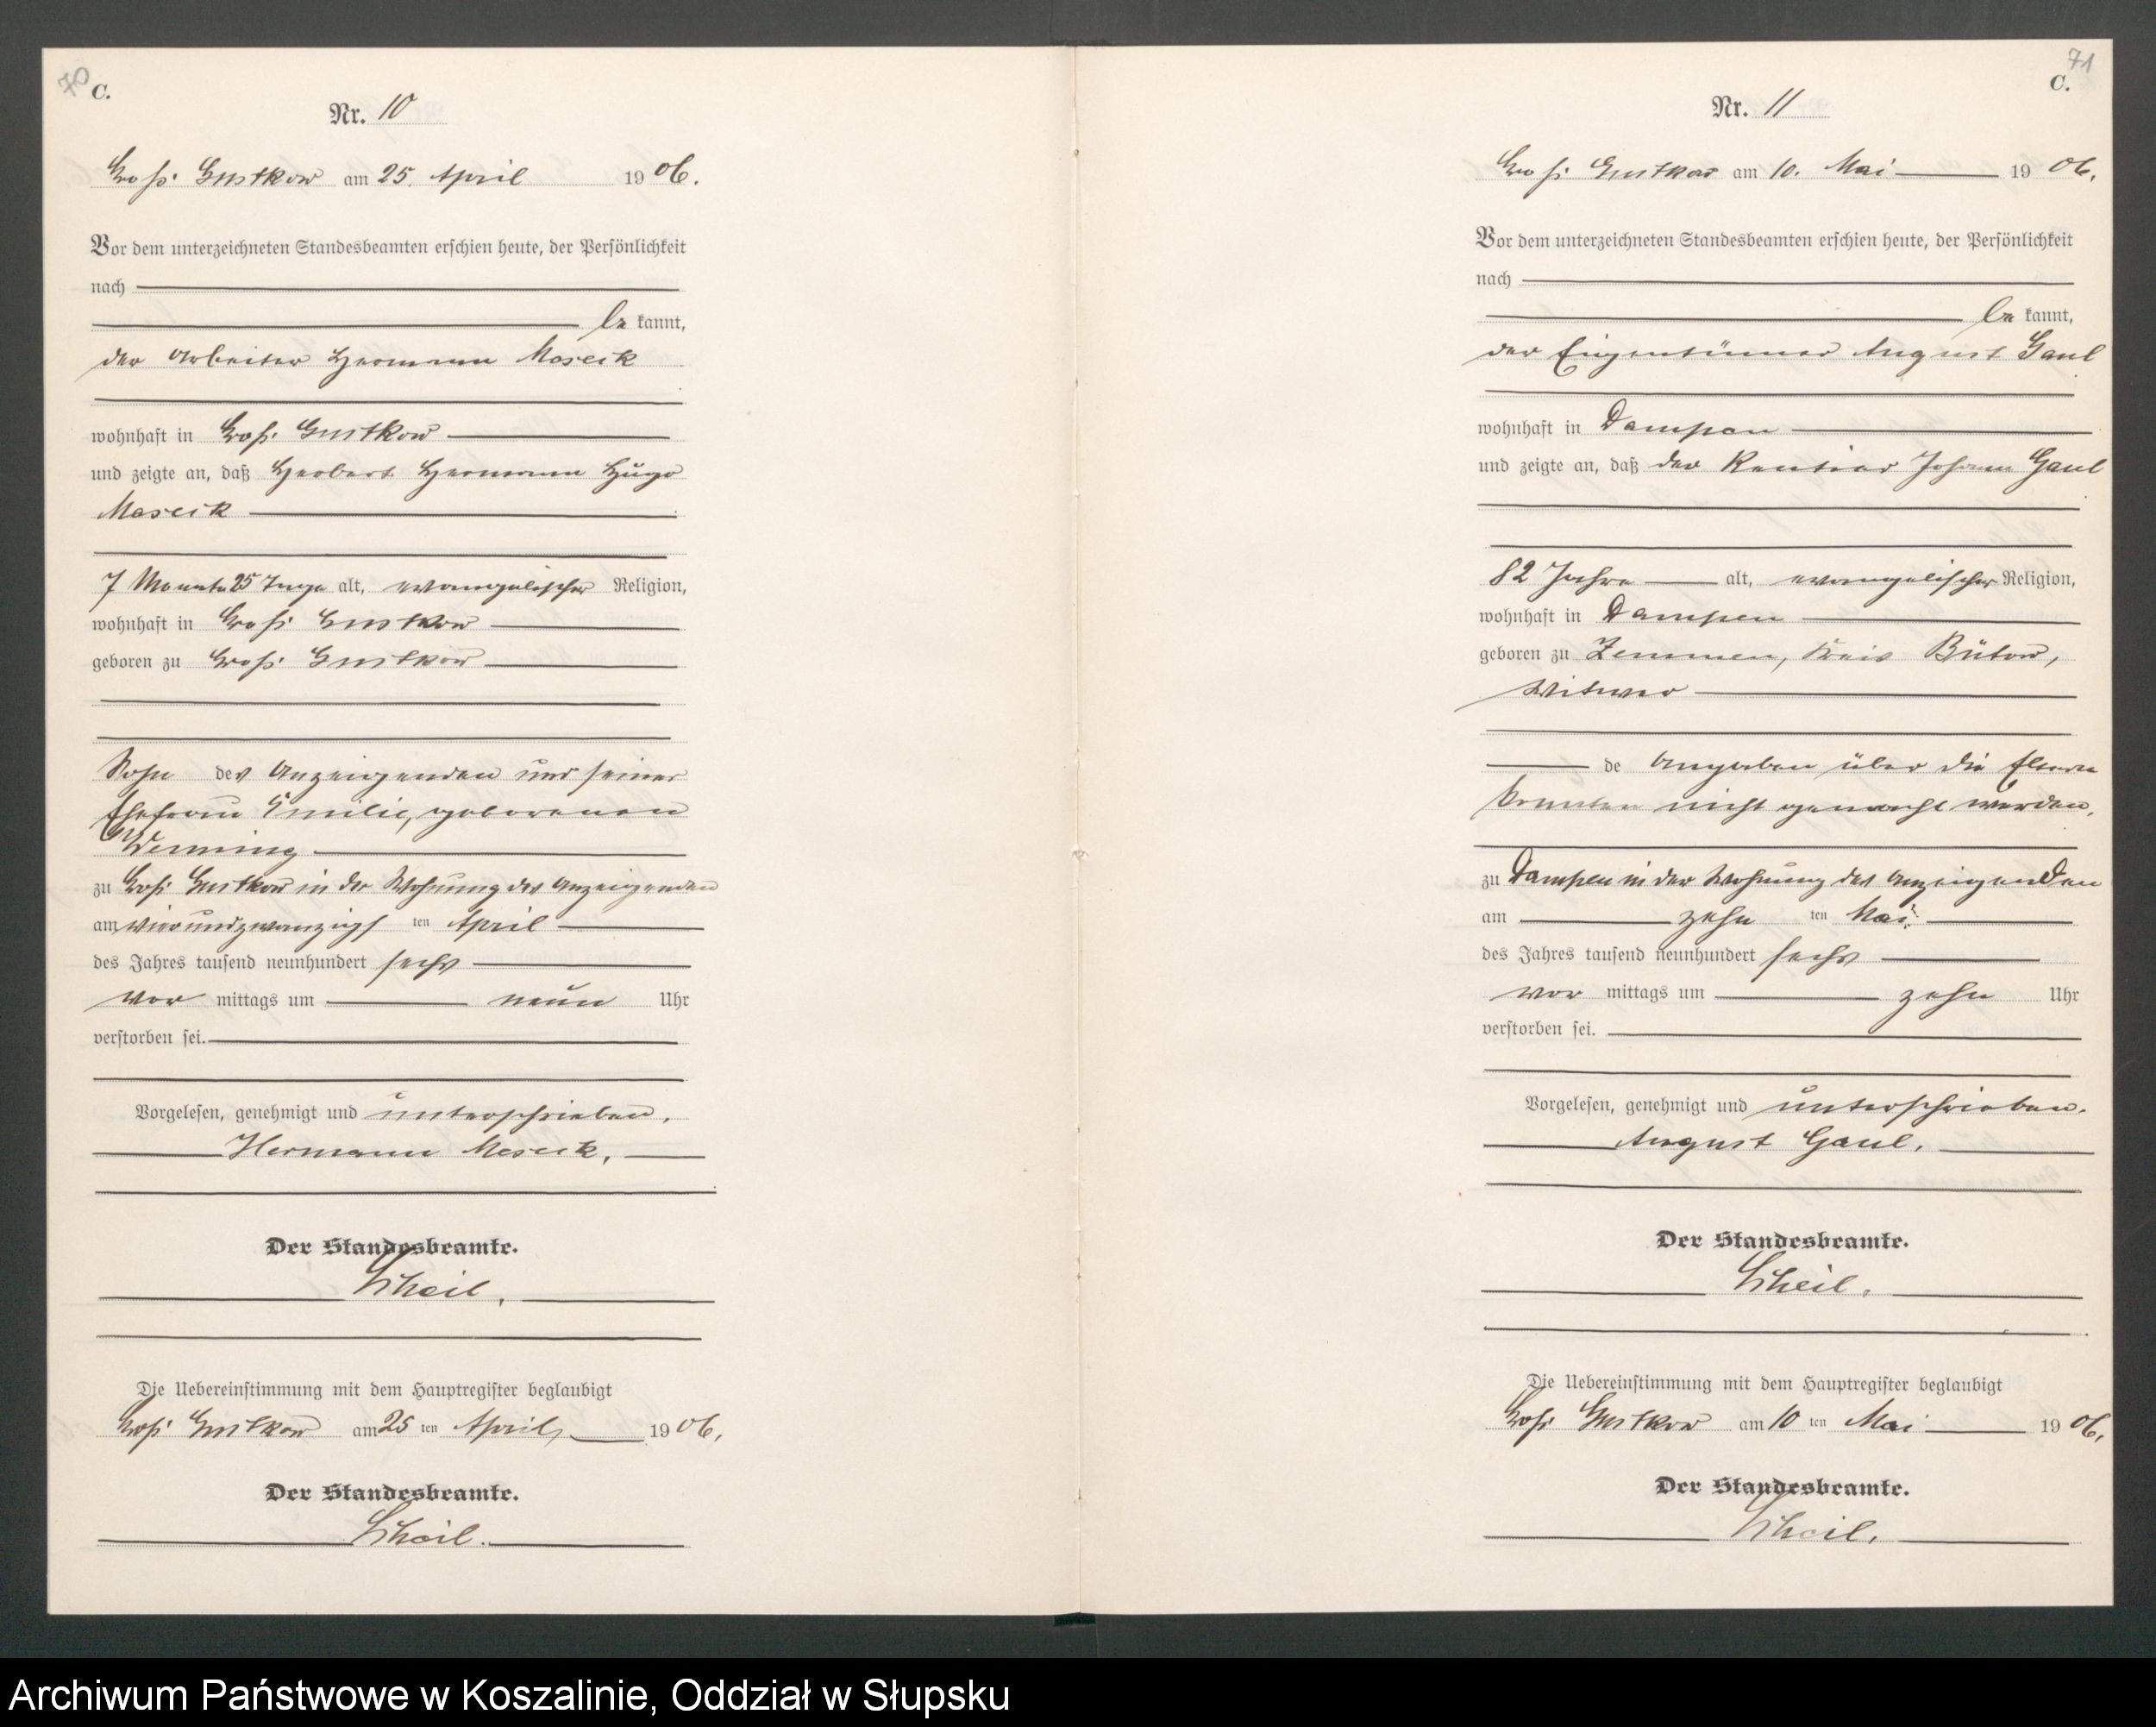 70
C.
Nr. 10
Groß Gustkow am 25. April 1906.
Vor dem unterzeichneten Standesbeamten erschien heute, der Persönlichkeit
nach
be kannt,
der Arbeiter Hermann Maseik
wohnhaft in Groß Gustkow
und zeigte an, daß Herbert Hermann Hugo
Maseik
7 Monate 25 Tage alt, evangelischer Religion,
wohnhaft in Groß Gustkow
geboren zu Groß Gustkow
Sohn des Anzeigenden und seiner
Ehefrau Emilie, geborenen
Werning
zu Groß Gustkow in der Wohnung des Anzeigenden
am vierundzwanzigsten April
des Jahres tausend neunhundert sechs
vor mittags um neun Uhr
verstorben sei.
Vorgelesen, genehmigt und unterschrieben.
Hermann
Der Standesbeamte.
Die Uebereinstimmung mit dem Hauptregister beglaubigt
Groß Gustkow am 25 ten April 1906.
Der Standesbeamte.
71
C.
Nr. 11
Groß Gustkow am 10. Mai 1906.
Vor dem unterzeichneten Standesbeamten erschien heute, der Persönlichkeit
nach
be kannt,
der Eigentümer August Gaul
wohnhaft in Dampen
und zeigte an, daß der Rentier Johann Gaul
82 Jahre alt, evangelischer Religion,
wohnhaft in Dampen
geboren zu Zemmen, Kreis Bütow,
Witwer
de Angaben über die Eltern
konnten nicht gemacht werden,
zu Dampen in der Wohnung des Anzeigenden
am zehn ten Mai
des Jahres tausend neunhundert sechs
vor mittags um zehn Uhr
verstorben sei.
Vorgelesen, genehmigt und unterschrieben.
August Gaul.
Der Standesbeamte.
Die Uebereinstimmung mit dem Hauptregister beglaubigt
Groß Gustkow am 10 ten Mai 1906.
Der Standesbeamte.
Archiwum Państwowe w Koszalinie, Oddział w Słupsku